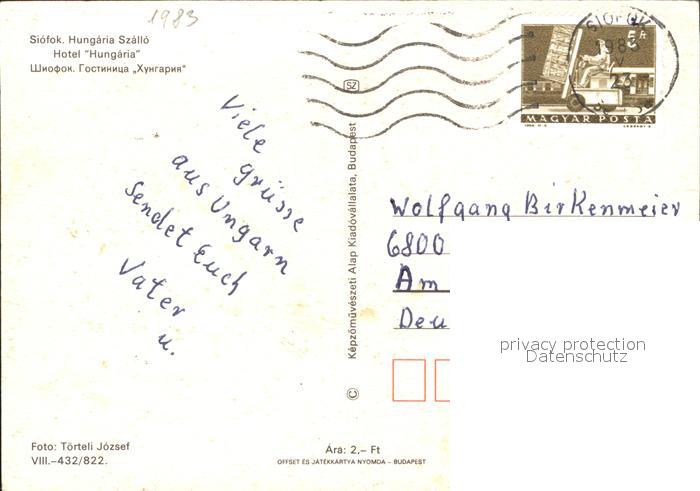 1983
Siófok. Hungária Szálló
Hotel "Hungária"
Шиофок. Гостиница „Хунгария"
SIÓFOK
5 Ft
MAGYAR POSTA
SZ
Viele
grüsse
aus Ungarn
Sendet Euch
Vater
u.
Képzőművészeti Alap Kiadóvállalata, Budapest
©
Wolfgang Birkenmeier
6800
Am
Deu
privacy protection
Datenschutz
Foto: Törteli József
VIII.–432/822.
Ára: 2,– Ft
OFFSET ÉS JÁTÉKKÁRTYA NYOMDA – BUDAPEST